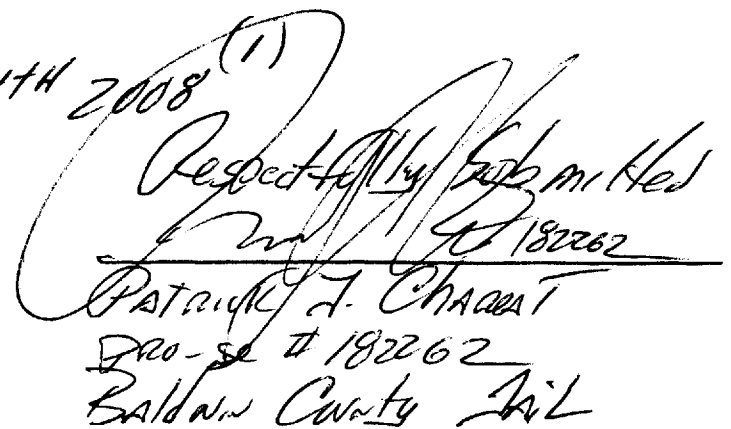 (1)
TH 2008
Respectfully Submitted
# 182262
PATRICK J. Charest
Pro-se # 182262
Baldwin County JAIL